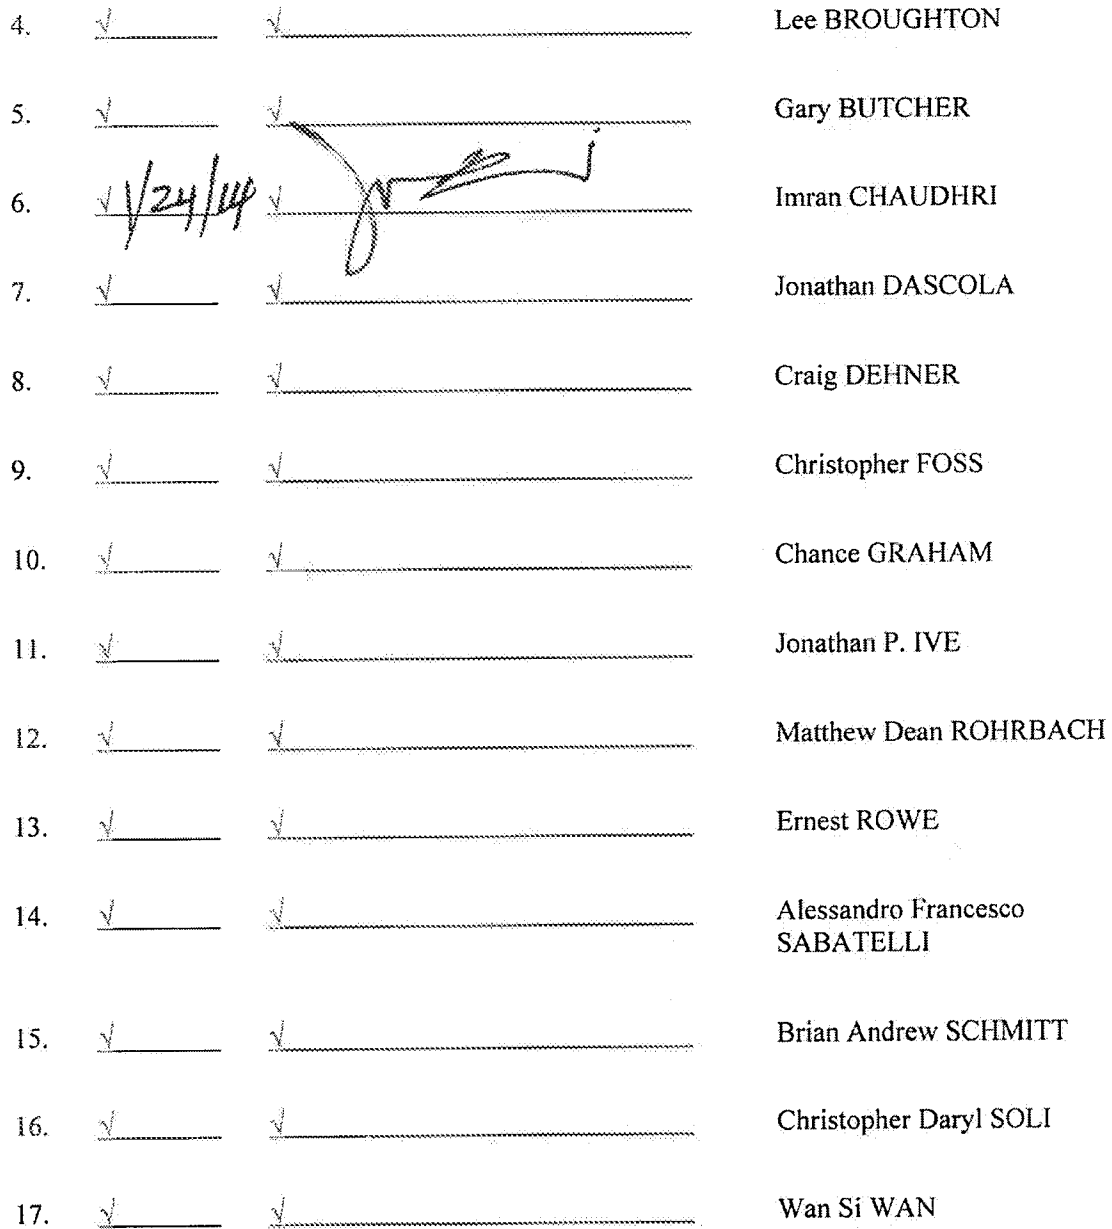 4. √ √ Lee BROUGHTON
5. √ √ Gary BUTCHER
6. √ 1/24/14 √ Imran CHAUDHRI
7. √ √ Jonathan DASCOLA
8. √ √ Craig DEHNER
9. √ √ Christopher FOSS
10. √ √ Chance GRAHAM
11. √ √ Jonathan P. IVE
12. √ √ Matthew Dean ROHRBACH
13. √ √ Ernest ROWE
14. √ √ Alessandro Francesco
SABATELLI
15. √ √ Brian Andrew SCHMITT
16. √ √ Christopher Daryl SOLI
17. √ √ Wan Si WAN